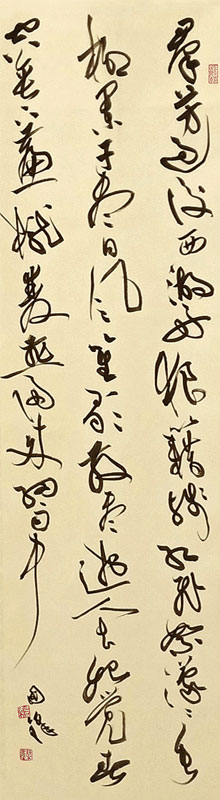 群芳過後西湖好狼籍殘紅飛絮濛濛垂
柳闌干盡日風笙歌散盡遊人去始覺春
空垂下簾櫳雙燕歸來細雨中